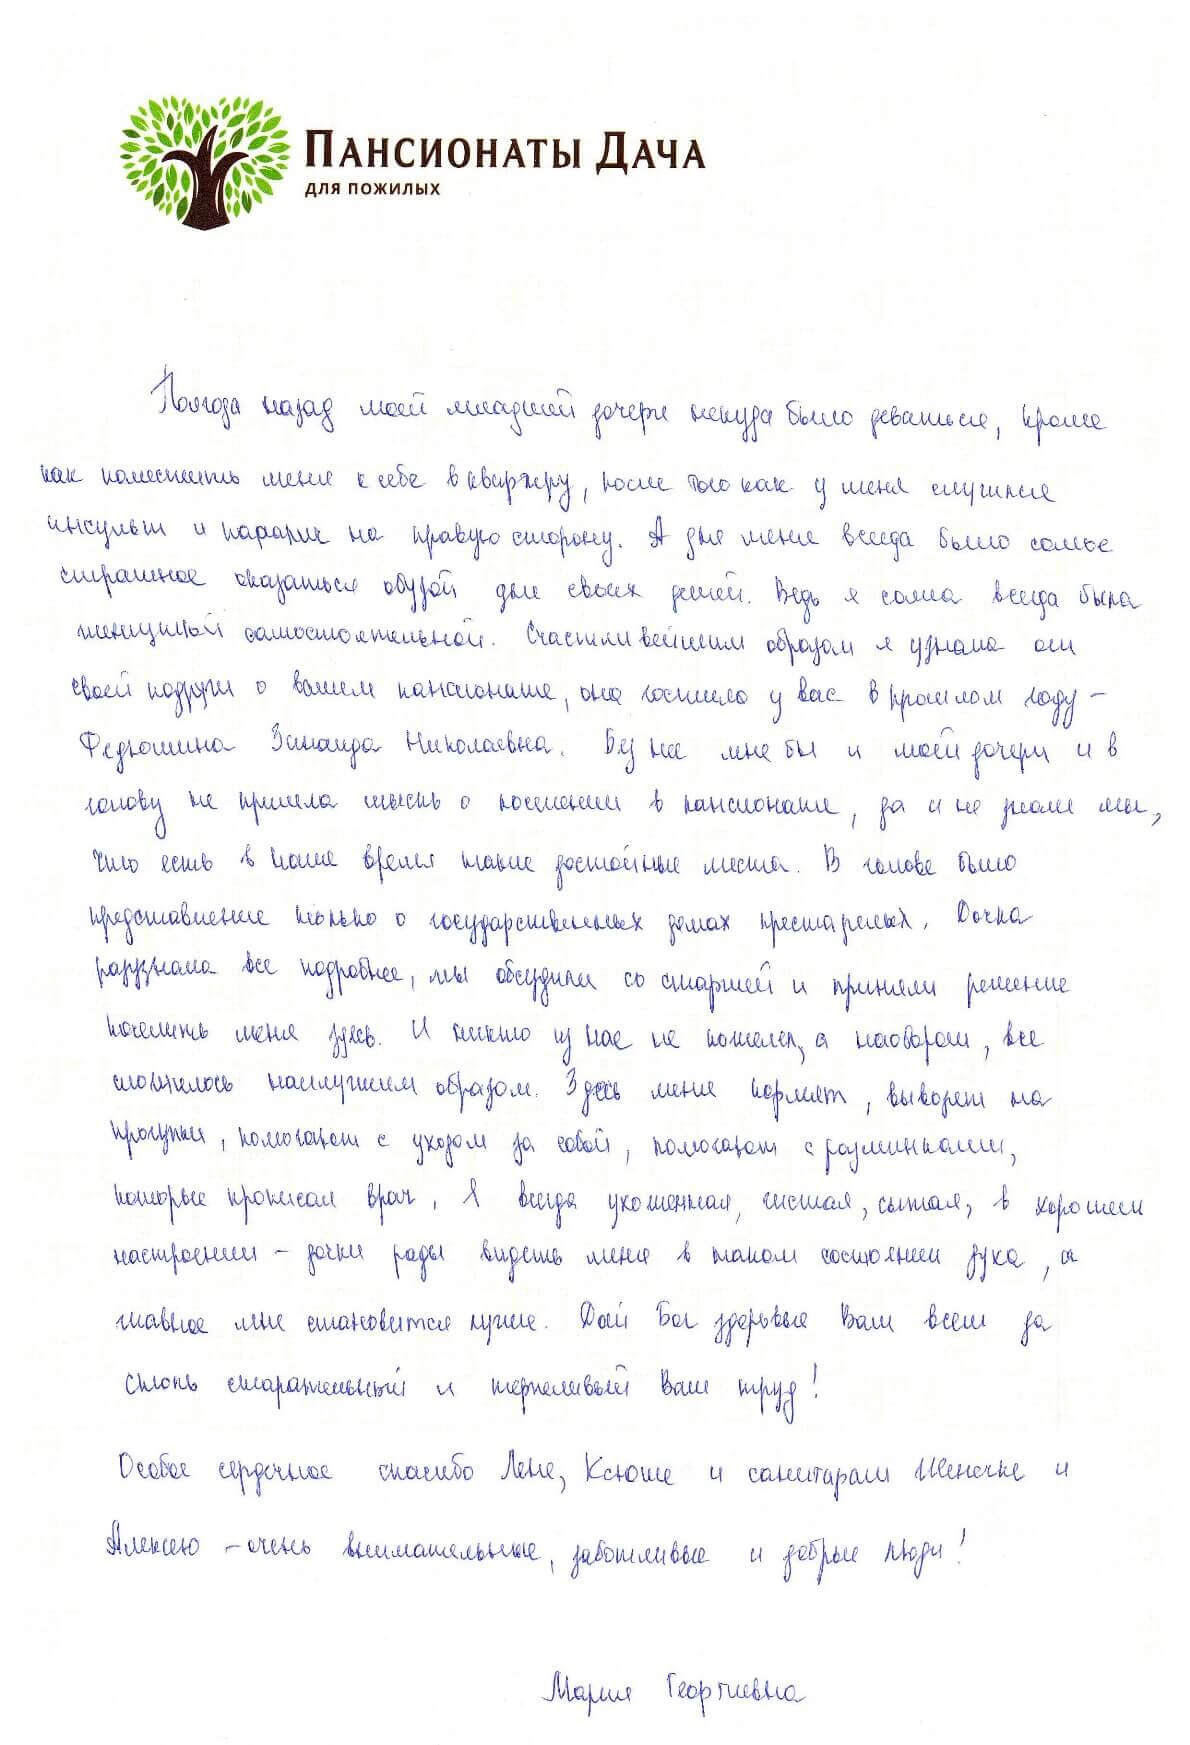 ПАНСИОНАТЫ ДАЧА
ДЛЯ ПОЖИЛЫХ
Полгода назад моей младшей дочери некуда было деваться, кроме
как поместить меня к себе в квартиру, после того как у меня случился
инсульт и паралич на правую сторону. А для меня всегда было самое
страшное оказаться обузой для своих детей. Ведь я сама всегда была
женщиной самостоятельной. Счастливейшим образом я узнала от
своей подруги о вашем пансионате, она гостила у вас в прошлом году –
Федюшина Зинаида Николаевна. Без нее мне бы и моей дочери и в
голову не пришла мысль о поселении в пансионате, да и не знали мы,
что есть в наше время такие достойные места. В голове было
представление только о государственных домах престарелых. Дочка
разузнала все подробнее, мы обсудили со старшей и приняли решение
поселить меня здесь. И никто из нас не пожалел, а наоборот, все
сложилось наилучшим образом. Здесь меня кормят, выводят на
прогулки, помогают с уходом за собой, помогают с разминками,
которые прописал врач. Я всегда ухоженная, чистая, сытая, в хорошем
настроении – дочки рады видеть меня в таком состоянии духа, а
главное мне становится лучше. Дай Бог здоровья Вам всем за
столь старательный и терпеливый Ваш труд!
Особое сердечное спасибо Лене, Ксюше и санитарам Женечке и
Алексею – очень внимательные, заботливые и добрые люди!
Мария Георгиевна